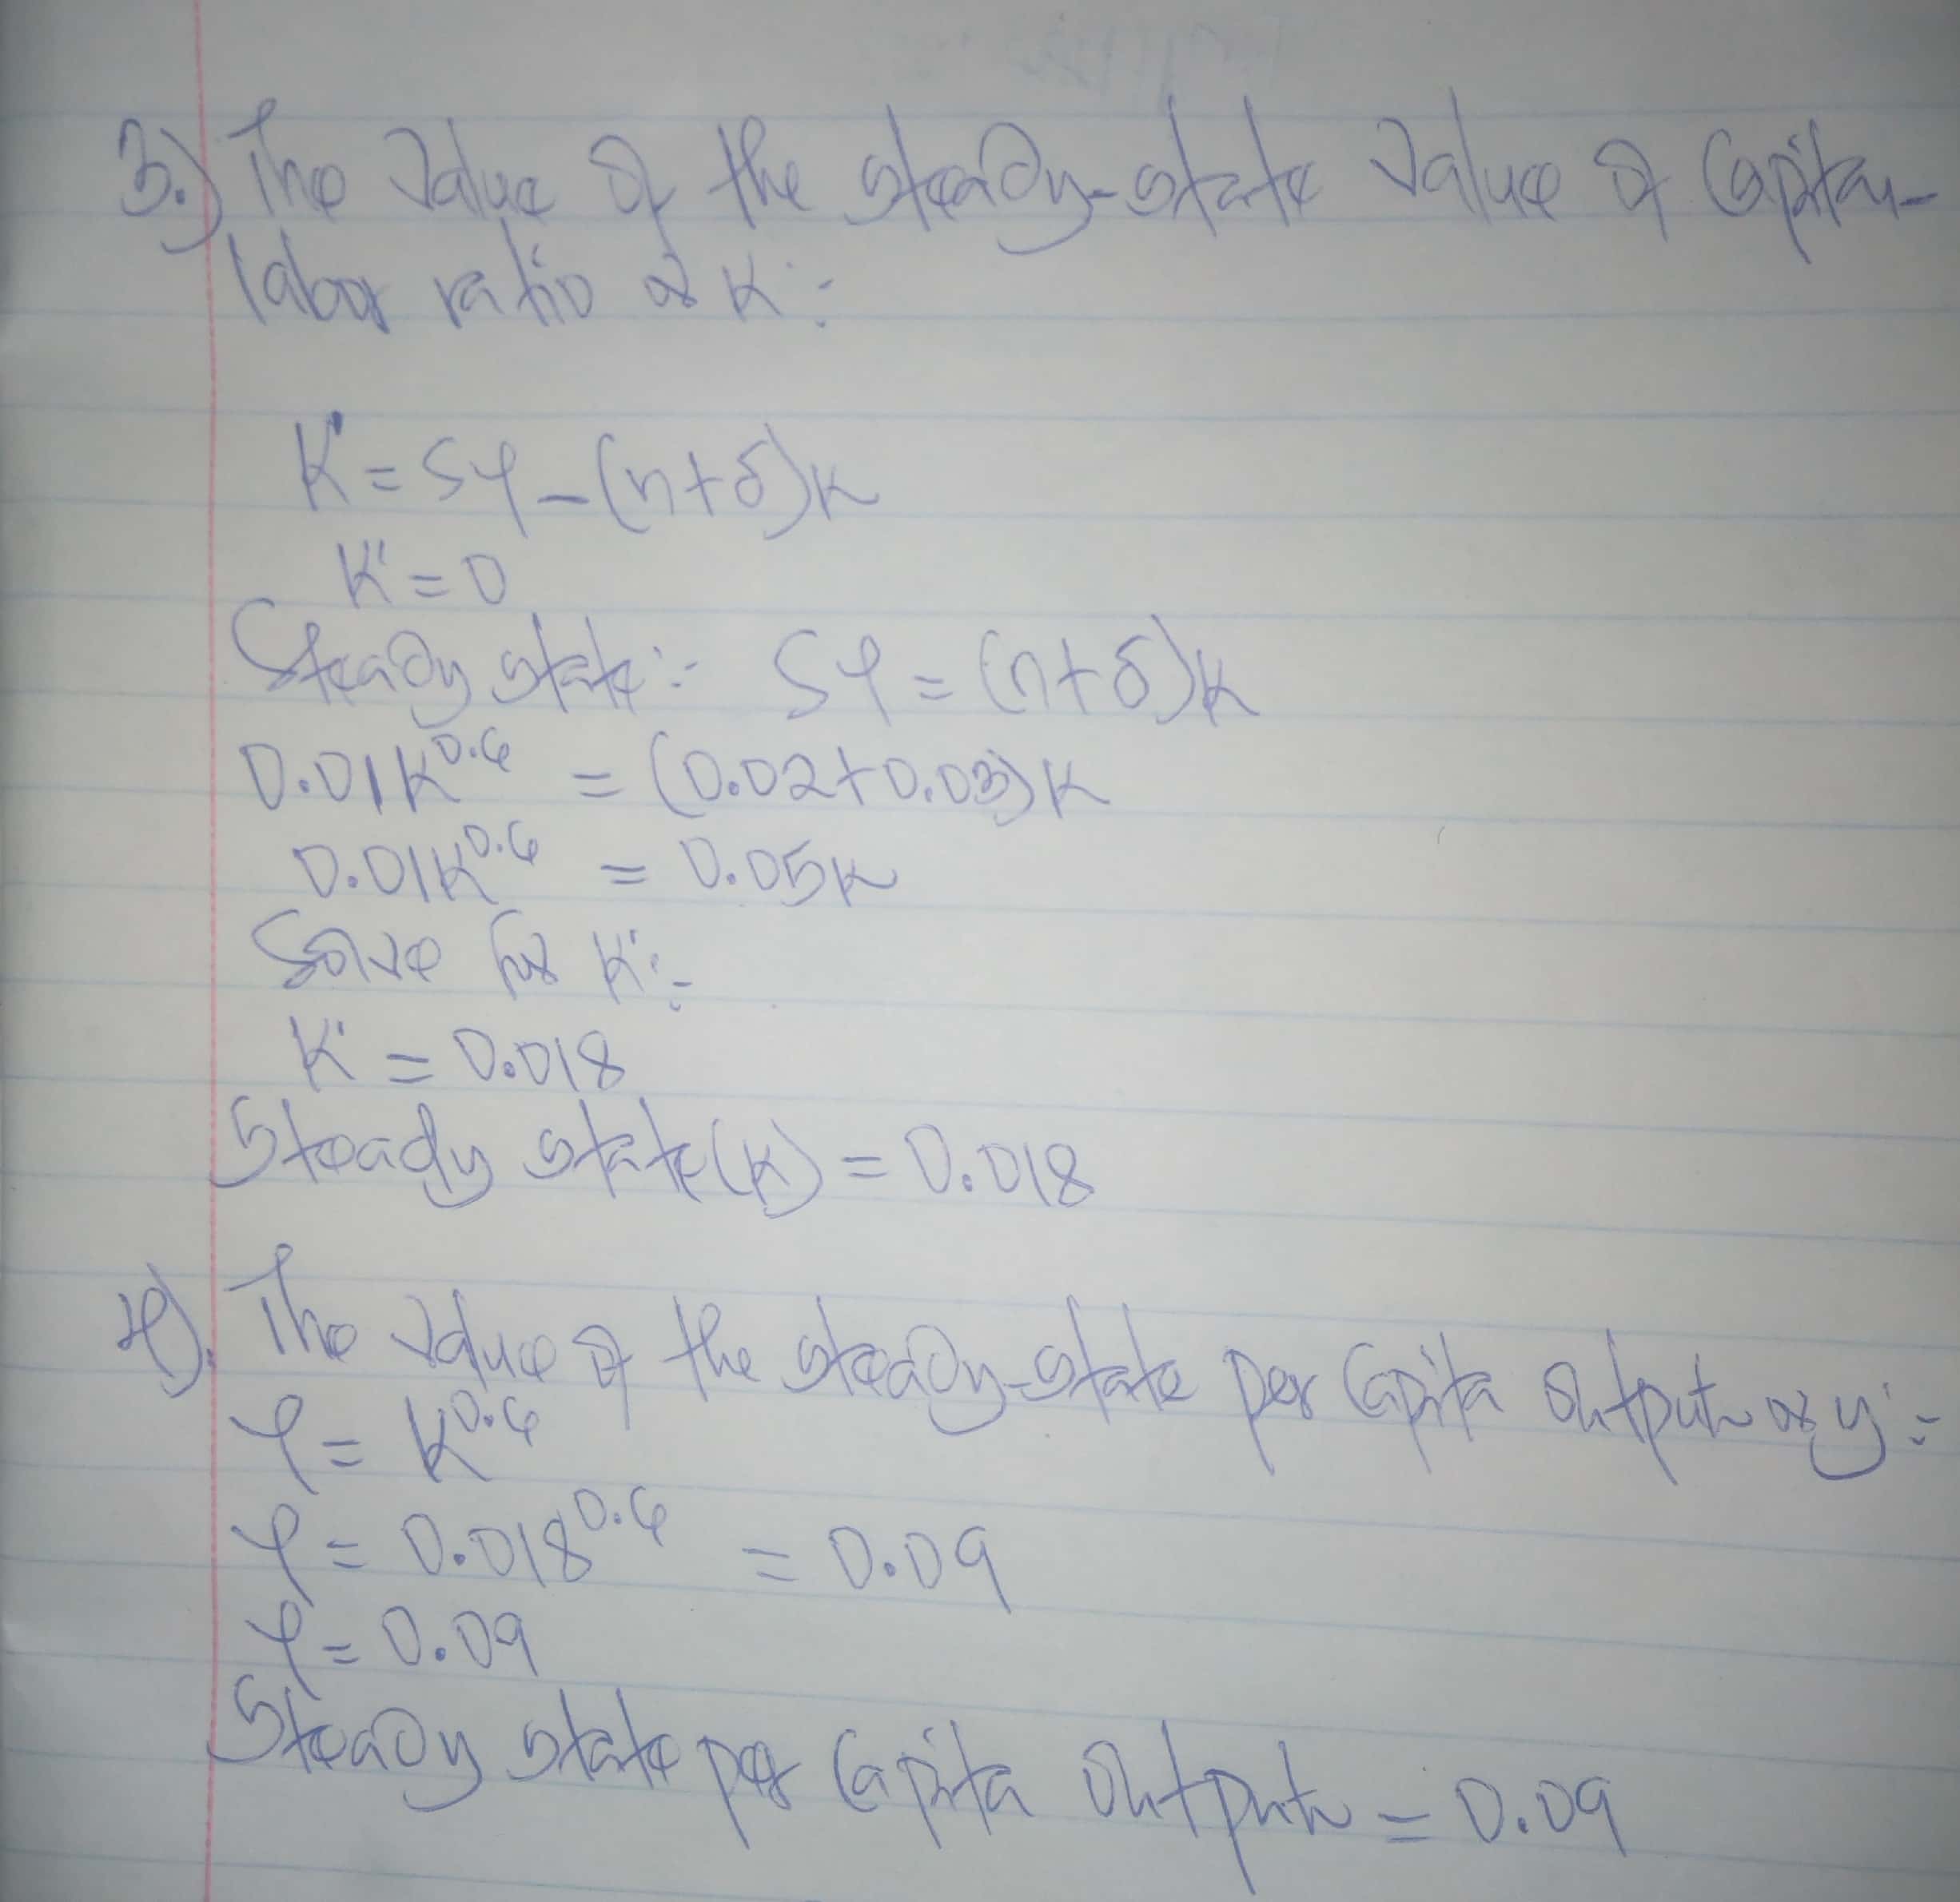 3.) The value of the steady-state value of Capital-
labor ratio or K:-
K̇ = Sy - (n+δ)K
K̇ = 0
Steady state:- Sy = (n+δ)K
0.01K^0.6 = (0.02+0.03)K
0.01K^0.6 = 0.05K
Solve for K:-
K = 0.018
Steady state(K) = 0.018
4). The value of the steady-state per Capita Output or y:-
y = K^0.6
y = 0.018^0.6 = 0.09
y = 0.09
Steady state per Capita Output = 0.09